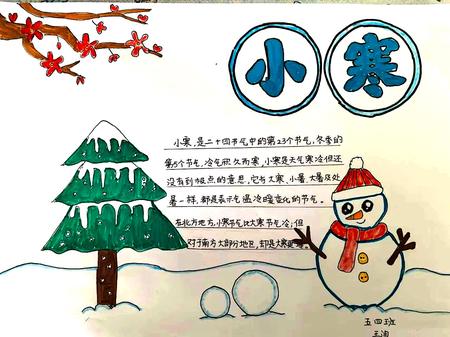 小寒
小寒,是二十四节气中的第23个节气,冬季的
第5个节气,冷气积久而寒,小寒是天气寒冷但还
没有到极点的意思,它与大寒、小暑、大暑及处
暑一样,都是表示气温冷暖变化的节气。
在北方地方,小寒节气比大寒节气冷;但
对于南方大部分地区,却是大寒更
五四班